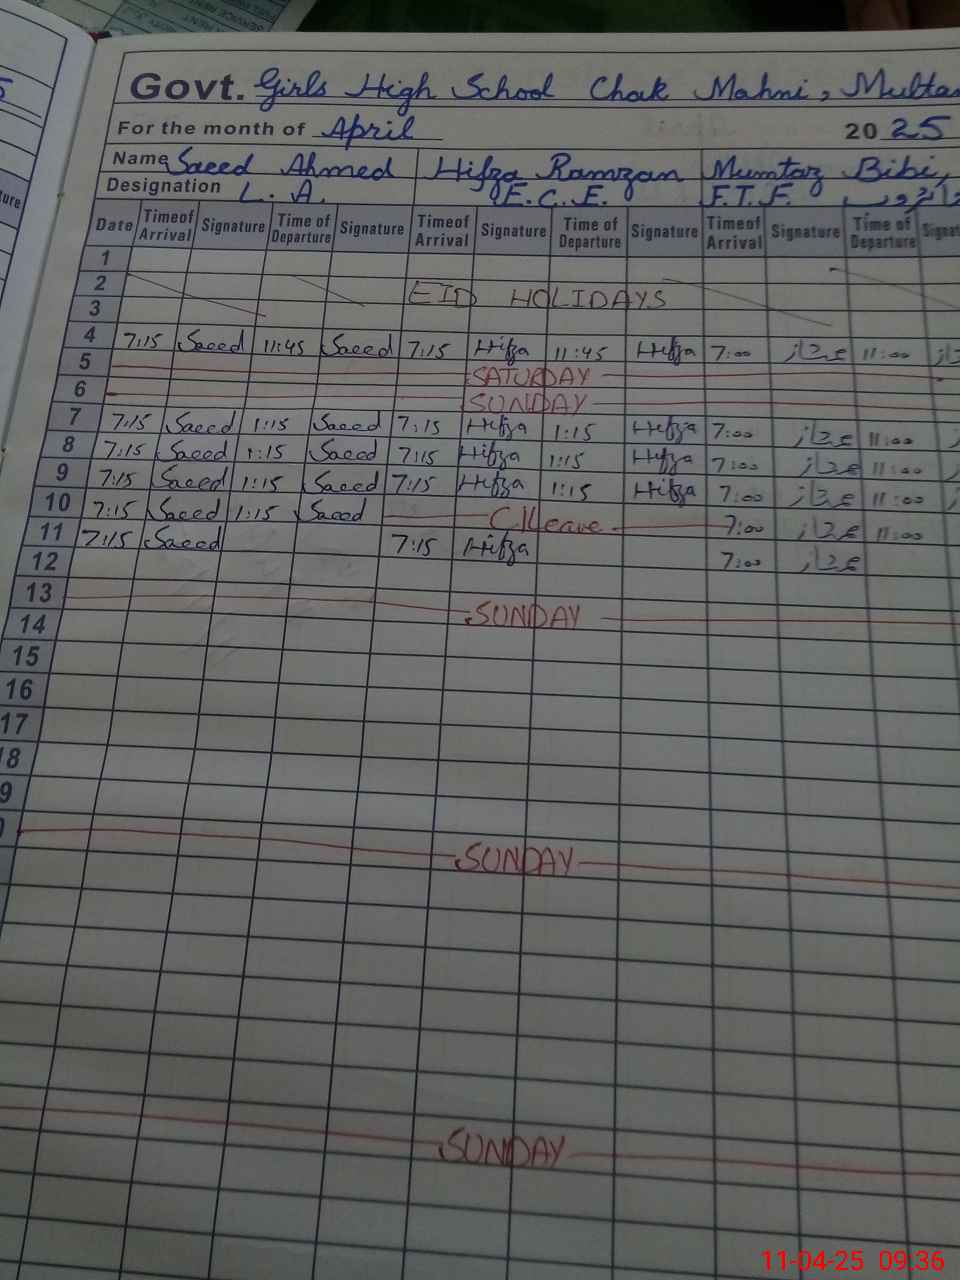 Govt. Girls High School Chak Mahni, Multan
For the month of April 2025
Name Saeed Ahmed Hifza Ramzan Mumtaz Bibi,
Designation L.A. E.C.E. F.T.F.
Date Timeof Arrival Signature Time of Departure Signature Timeof Arrival Signature Time of Departure Signature Timeof Arrival Signature Time of Departure
1
2 EID HOLIDAYS
3
4 7:15 Saeed 11:45 Saeed 7:15 Hifza 11:45 Hifza 7:00 11:00
5 SATURDAY
6 SUNDAY
7 7:15 Saeed 1:15 Saeed 7:15 Hifza 1:15 Hifza 7:00 11:00
8 7:15 Saeed 1:15 Saeed 7:15 Hifza 1:15 Hifza 7:00 11:00
9 7:15 Saeed 1:15 Saeed 7:15 Hifza 1:15 Hifza 7:00 11:00
10 7:15 Saeed 1:15 Saeed C/Leave 7:00 11:00
11 7:15 Saeed 7:15 Hifza 7:00
12
13 SUNDAY
14
15
16
17
18
SUNDAY
SUNDAY
11-04-25 09:36